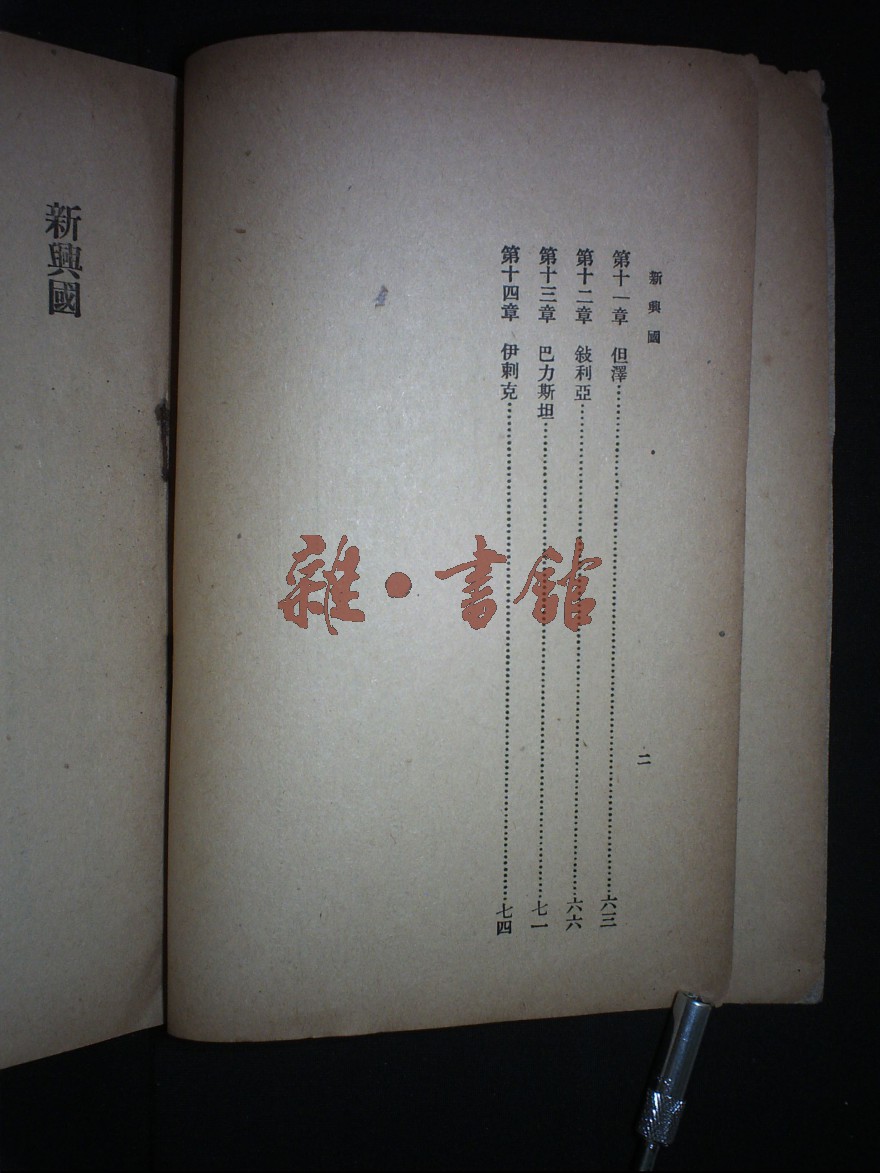 新興國
二
第十一章　但澤……六三
第十二章　敍利亞……六六
第十三章　巴力斯坦……七一
第十四章　伊剌克……七四
新興國
雜·書館